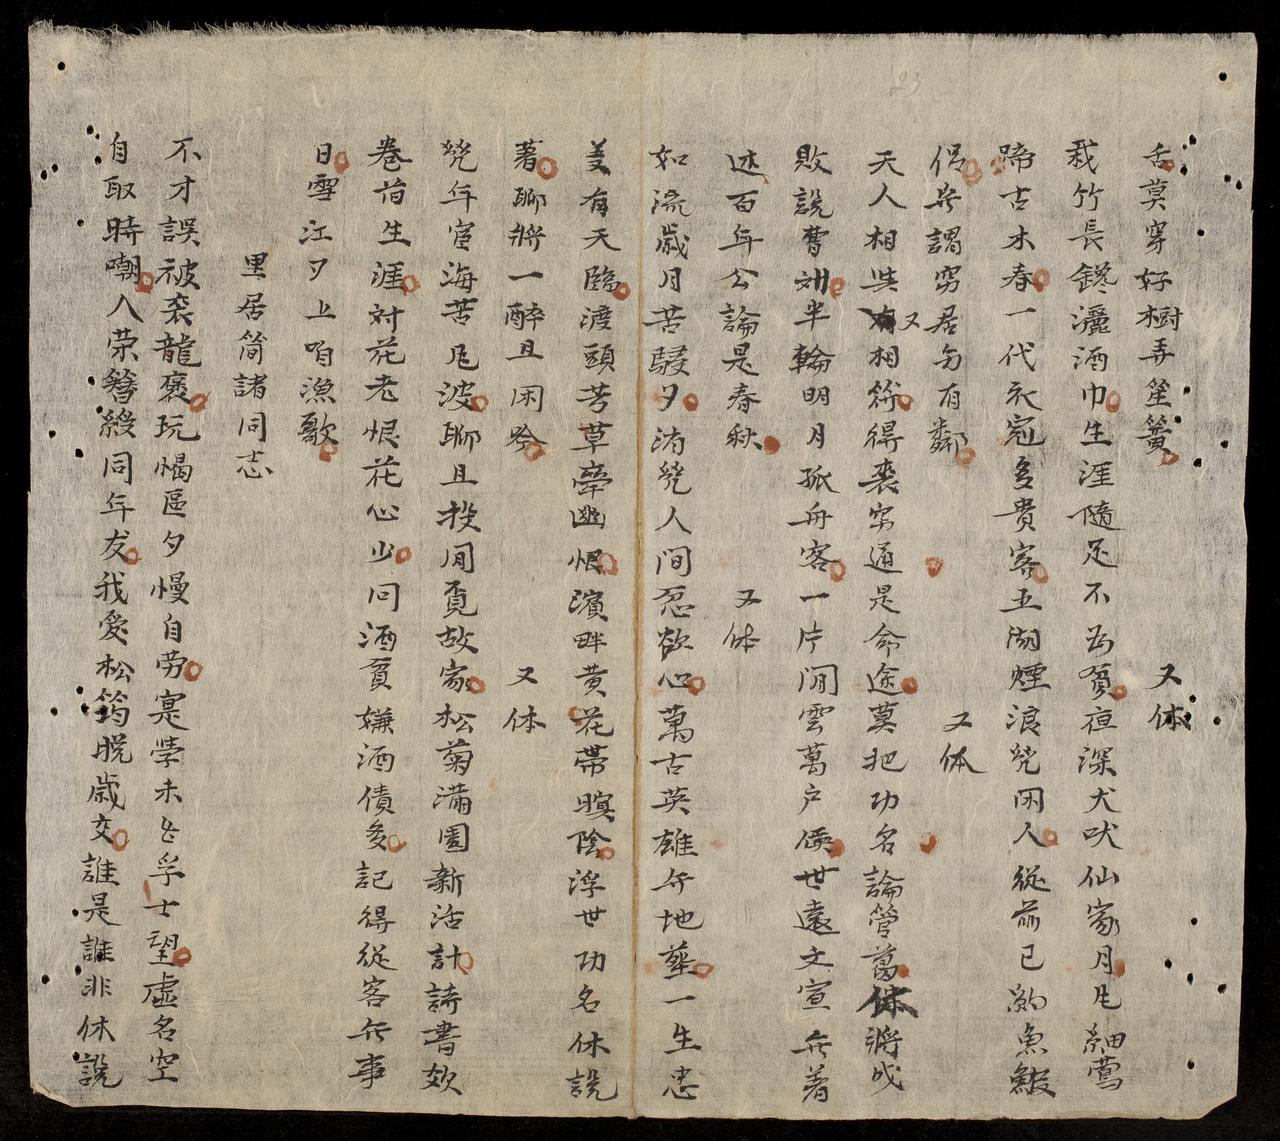 舌莫穿好樹弄笙簧　又体
栽竹長鑱灑酒巾生涯隨足不為貧夜深犬吠仙家月風細鶯
啼古木春一代衣冠多貴客五湖煙浪幾閑人從前已約魚鰕
侶无謂穷居另有鄰　又体
天人相與又相符得喪穷通是命途莫把功名論管葛將成
敗說曹劉半輪明月孤舟客一片閒雲萬戶侯世遠文宣無著
述百年公論是春秋　又体
如流歲月苦駸夕浠幾人間忍欲心萬古英雄無地塟一生忠
美有天臨渡頭芳草牽幽恨濱畔黄花帶暝陰浮世功名休說
著聊將一醉且閑吟　又体
幾年宦海苦風波聊且投閒覓故家松菊滿園新活計詩書欬
卷舊生涯對花老恨花心少同酒貧嫌酒債多記得從客無事
日雪江夕上咱漁歌
里居简諸同志
不才誤被衮龍褒玩愒區夕慢自劳寔學未孚士望虛名空
自取時嘲人荣簪綬同年友我愛松筠晚歲交誰是誰非休說